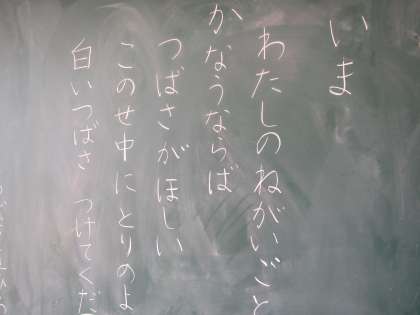 いま
わたしのねがいごと
かなうならば
つばさがほしい
このせ中にとりのよ
白いつばさ つけてくだ